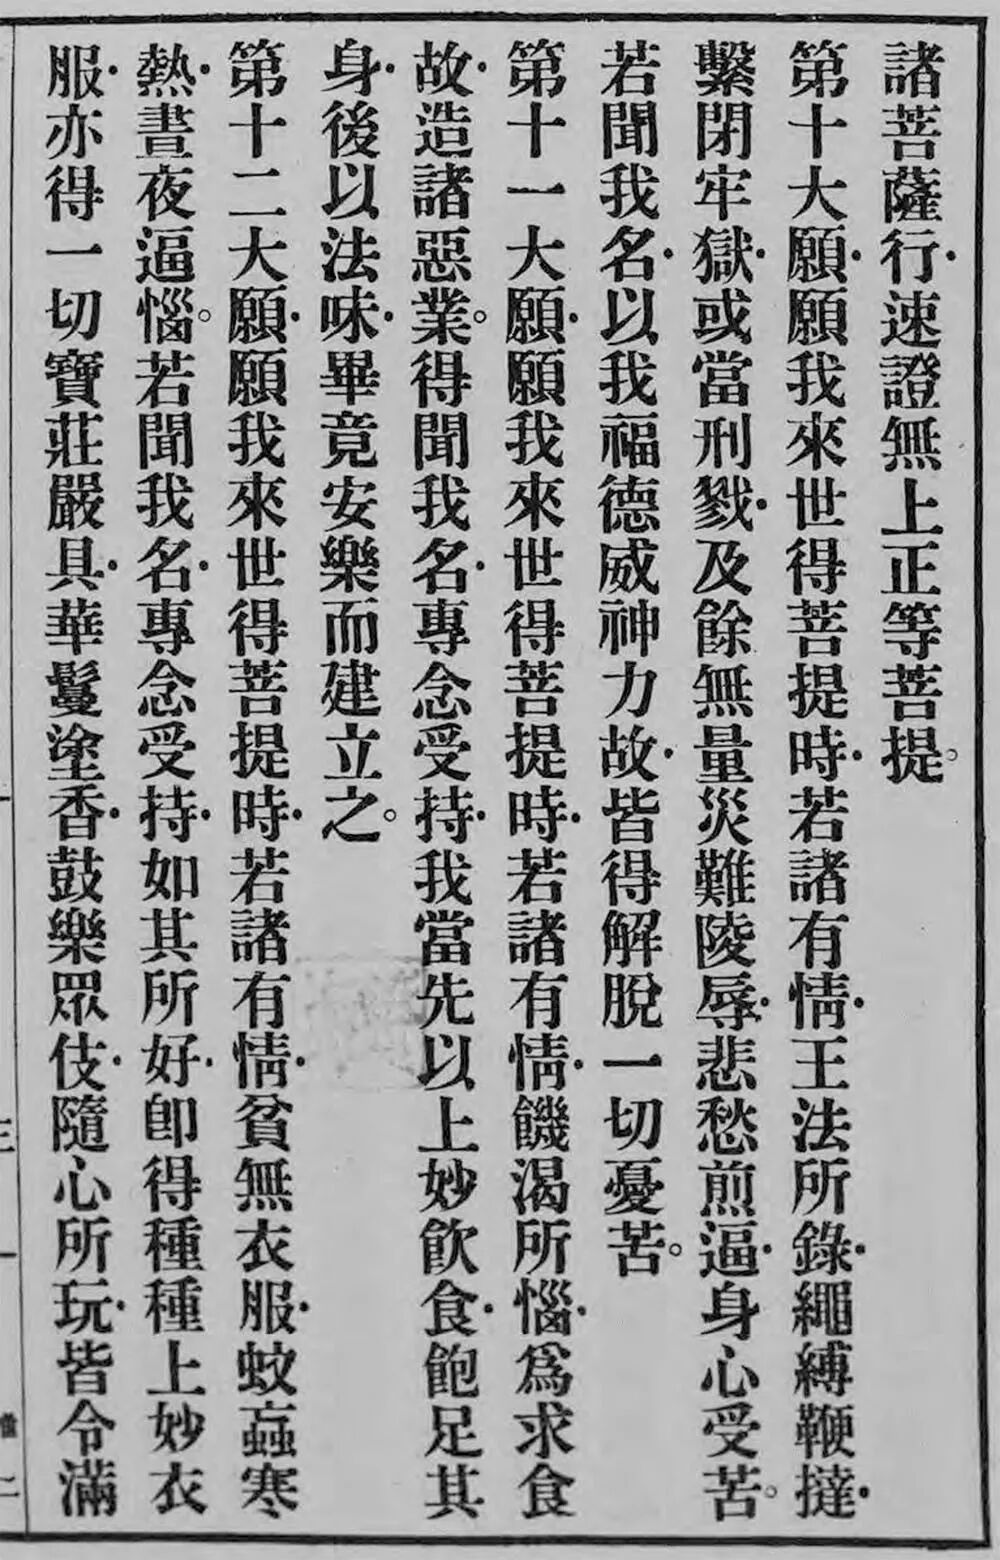 諸菩薩行·速證無上正等菩提。
第十大願·願我來世得菩提時·若諸有情·王法所錄·繩縛鞭撻·
繫閉牢獄·或當刑戮·及餘無量災難陵辱·悲愁煎逼·身心受苦。
若聞我名·以我福德威神力故·皆得解脫一切憂苦。
第十一大願·願我來世得菩提時·若諸有情·饑渴所惱·為求食
故·造諸惡業。得聞我名·專念受持·我當先以上妙飲食·飽足其
身·後以法味·畢竟安樂而建立之。
第十二大願·願我來世得菩提時·若諸有情·貧無衣服·蚊蝱寒
熱·晝夜逼惱。若聞我名·專念受持·如其所好·即得種種上妙衣
服·亦得一切寶莊嚴具·華鬘塗香·鼓樂眾伎·隨心所玩·皆令滿